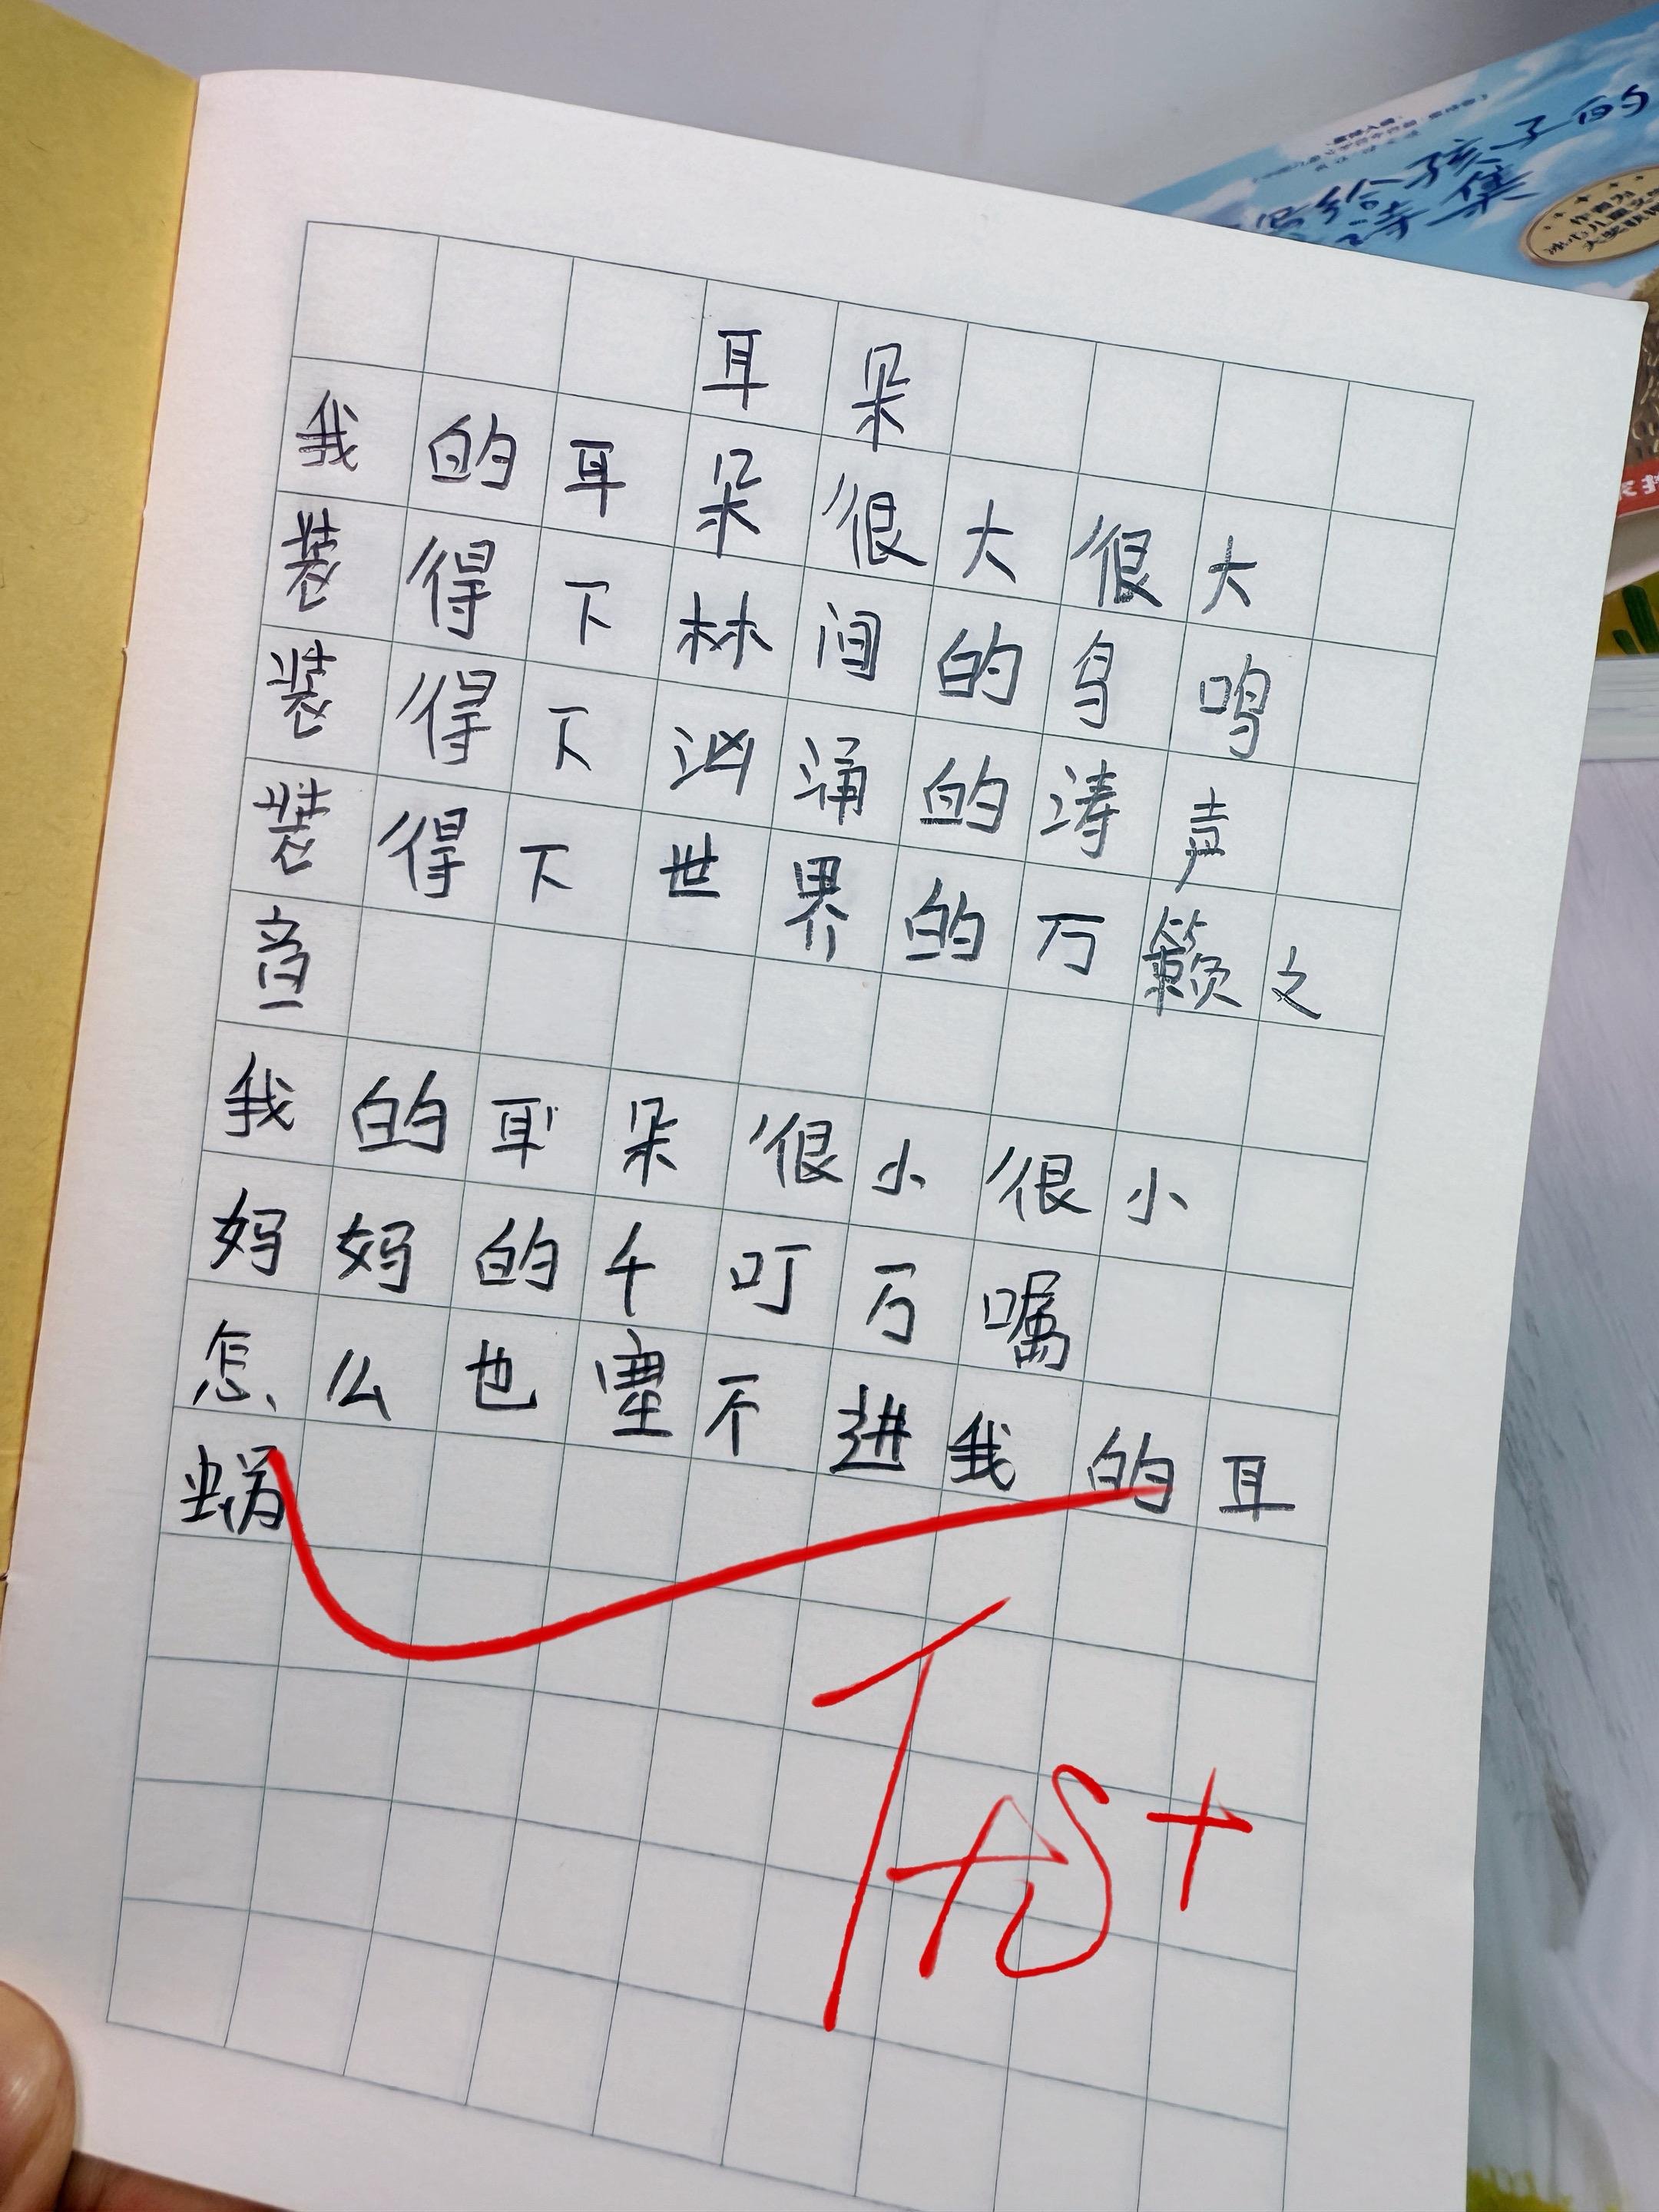 耳朵
我的耳朵很大很大
装得下林间的鸟鸣
装得下汹涌的涛声
装得下世界的万籁之
音
我的耳朵很小很小
妈妈的千叮万嘱
怎么也塞不进我的耳
蜗
写给孩子的
诗集
作者为
冰心儿童文学
大奖获得